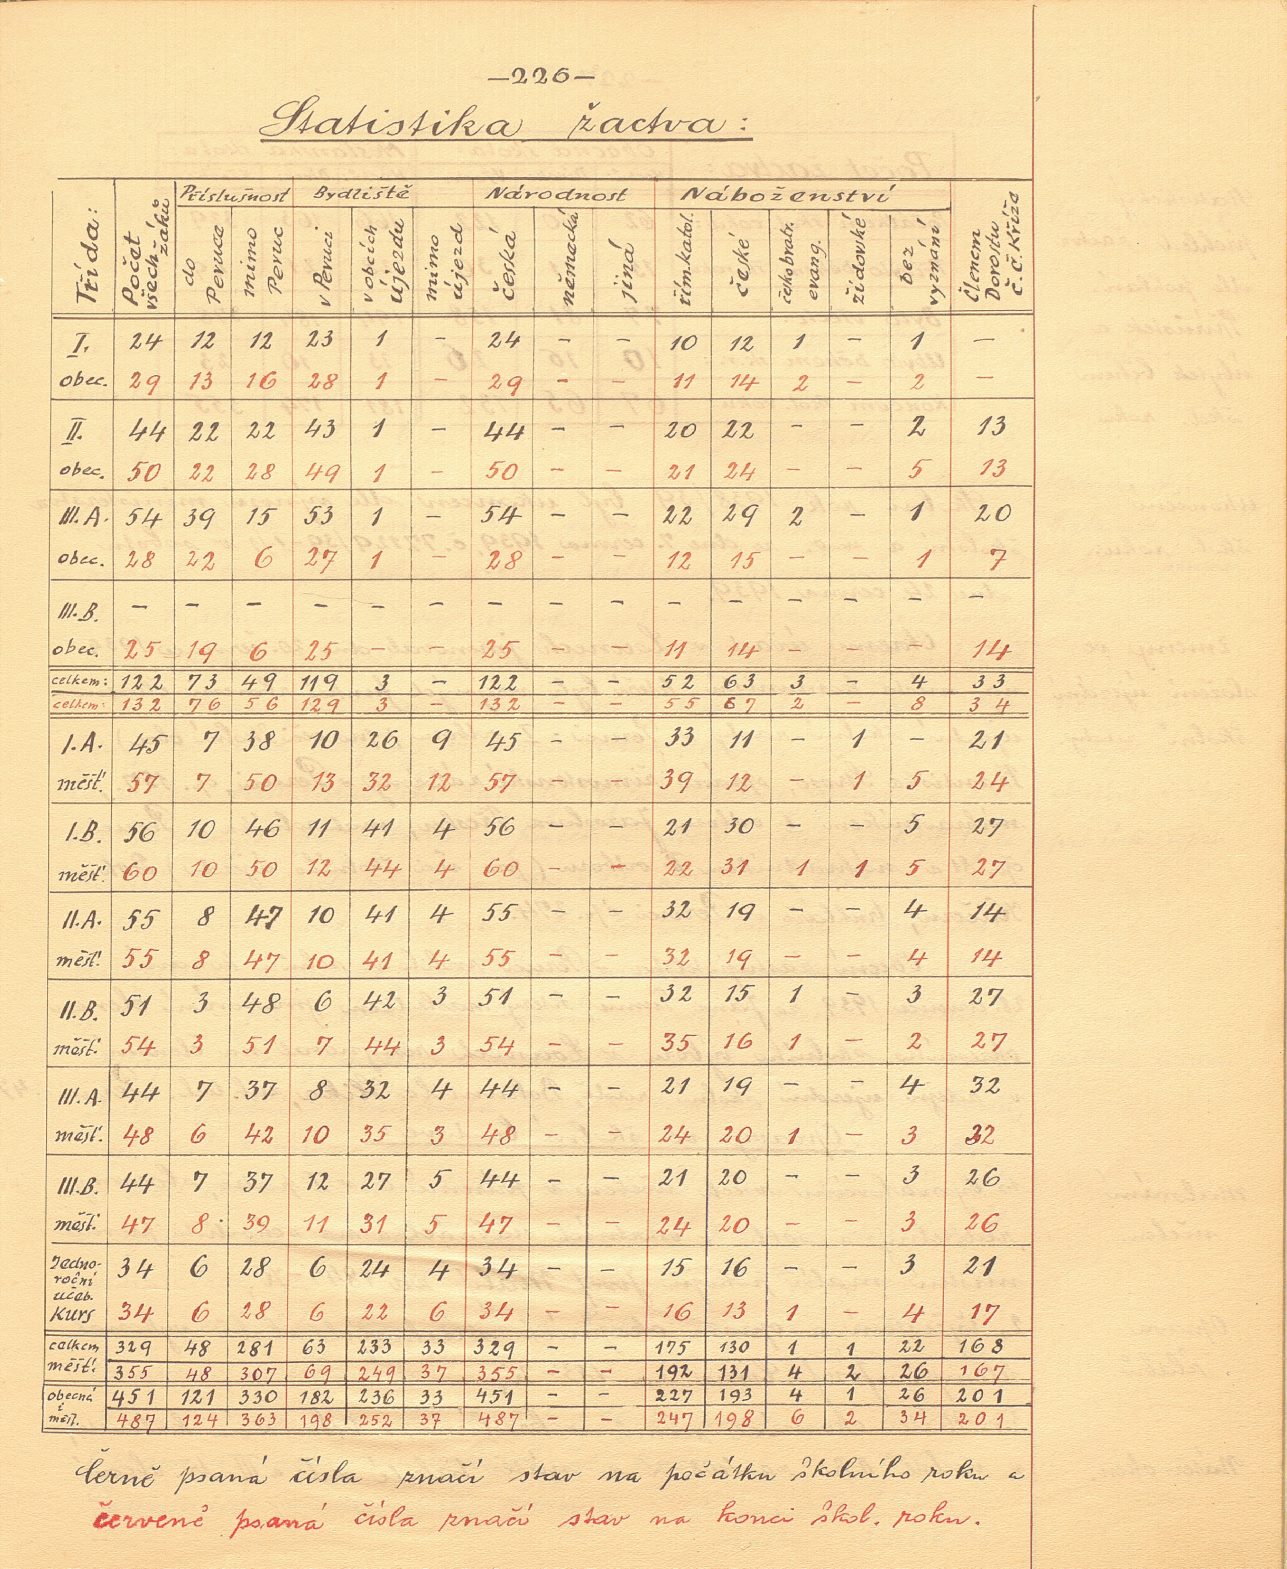 —226—
Statistika žactva:
Třída: Počet všech žáků Příslušnost Bydliště Národnost Náboženství Členem Dorostu Č. Č. Kříže
do Peruce mimo Peruc v Peruci v obcích újezdu mimo újezd česká německá jiná řím. katol. české českobratr. evang. židovské bez vyznání
I. 24 12 12 23 1 – 24 – – 10 12 1 – 1 —
obec. 29 13 16 28 1 – 29 – – 11 14 2 – 2 —
II. 44 22 22 43 1 – 44 – – 20 22 – – 2 13
obec. 50 22 28 49 1 – 50 – – 21 24 – – 5 13
III. A. 54 39 15 53 1 – 54 – – 22 29 2 – 1 20
obec. 28 22 6 27 1 – 28 – – 12 15 – – 1 7
III. B. – – – – – – – – – – – – – – –
obec. 25 19 6 25 – – 25 – – 11 14 – – – 14
celkem: 122 73 49 119 3 – 122 – – 52 63 3 – 4 33
celkem: 132 76 56 129 3 – 132 – – 55 67 2 – 8 34
I. A. 45 7 38 10 26 9 45 – – 33 11 – 1 – 21
měšť. 57 7 50 13 32 12 57 – – 39 12 – 1 5 24
I. B. 56 10 46 11 41 4 56 – – 21 30 – – 5 27
měšť. 60 10 50 12 44 4 60 – – 22 31 1 1 5 27
II. A. 55 8 47 10 41 4 55 – – 32 19 – – 4 14
měšť. 55 8 47 10 41 4 55 – – 32 19 – – 4 14
II. B. 51 3 48 6 42 3 51 – – 32 15 1 – 3 27
měšť. 54 3 51 7 44 3 54 – – 35 16 1 – 2 27
III. A. 44 7 37 8 32 4 44 – – 21 19 – – 4 32
měšť. 48 6 42 10 35 3 48 – – 24 20 1 – 3 32
III. B. 44 7 37 12 27 5 44 – – 21 20 – – 3 26
měšť. 47 8 39 11 31 5 47 – – 24 20 – – 3 26
Jednoroční 34 6 28 6 24 4 34 – – 15 16 – – 3 21
učeb. kurs 34 6 28 6 22 6 34 – – 16 13 1 – 4 17
celkem 329 48 281 63 233 33 329 – – 175 130 1 1 22 168
měšť. 355 48 307 69 249 37 355 – – 192 131 4 2 26 167
obecná 451 121 330 182 236 33 451 – – 227 193 4 1 26 201
i měšť. 487 124 363 198 252 37 487 – – 247 198 6 2 34 201
Černě psaná čísla značí stav na počátku školního roku a
červeně psaná čísla značí stav na konci škol. roku.